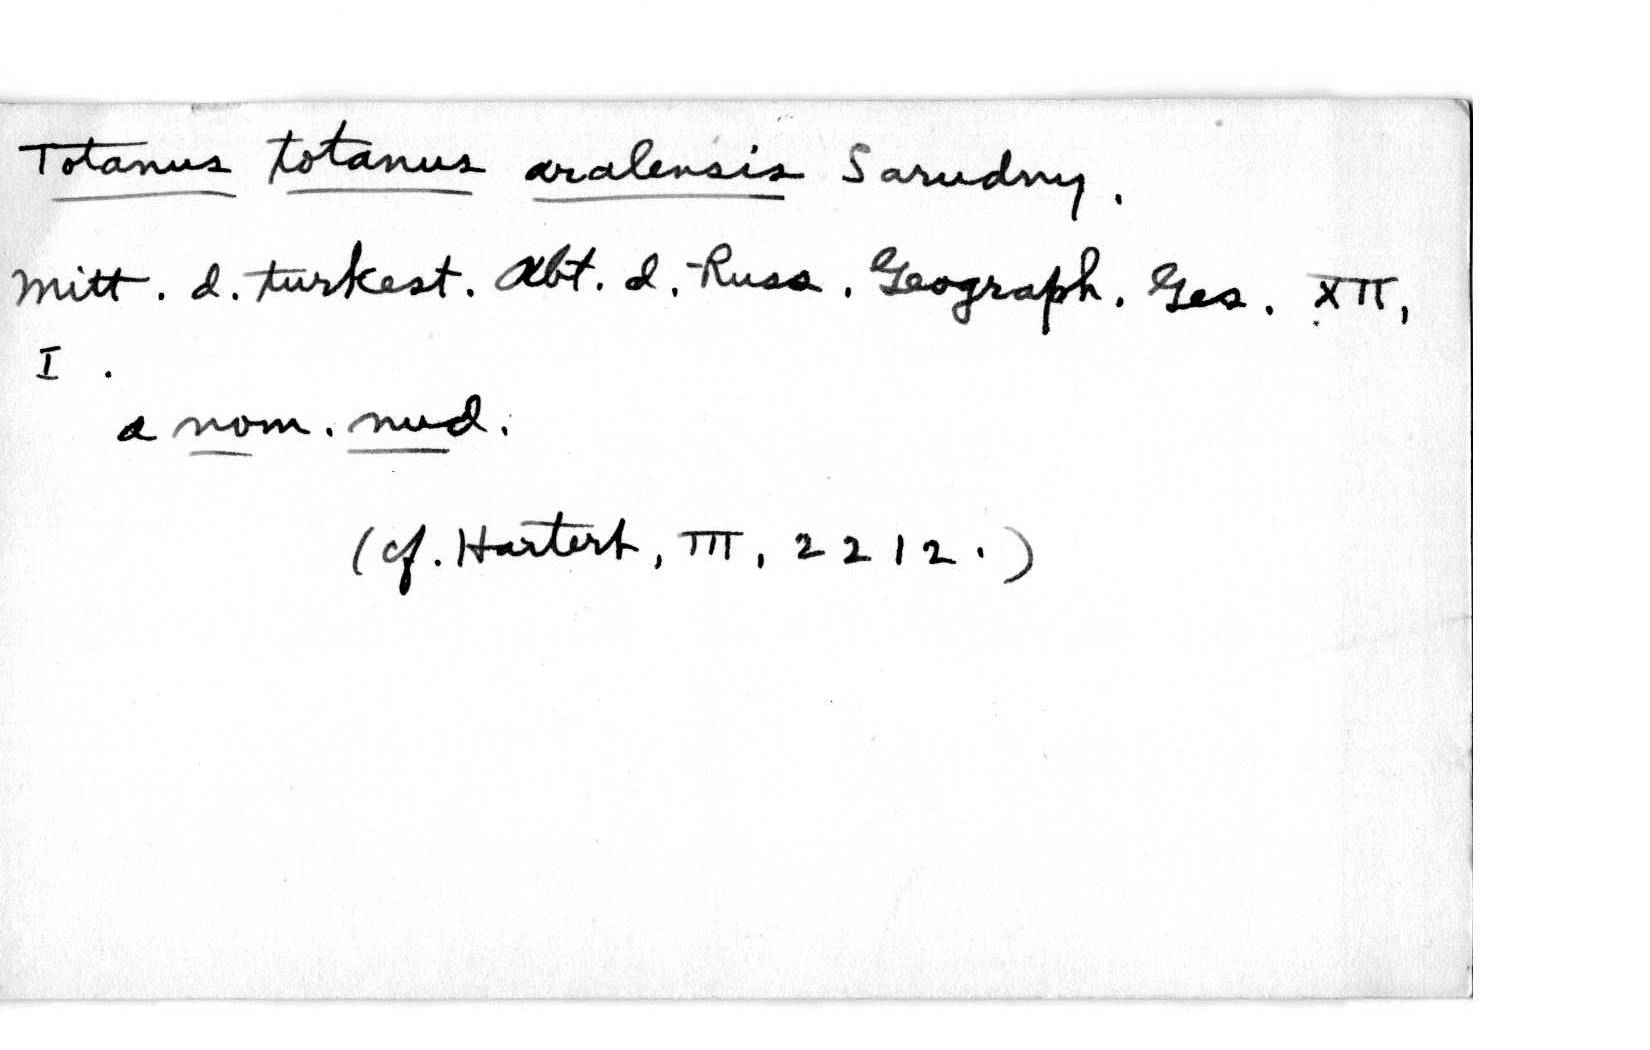 Totanus totanus aralensis Sarudny.
Mitt. d. turkest. Abt. d. Russ. Geograph. Ges. XII,
I.
a nom. nud.
(cf. Hartert, III, 2212.)